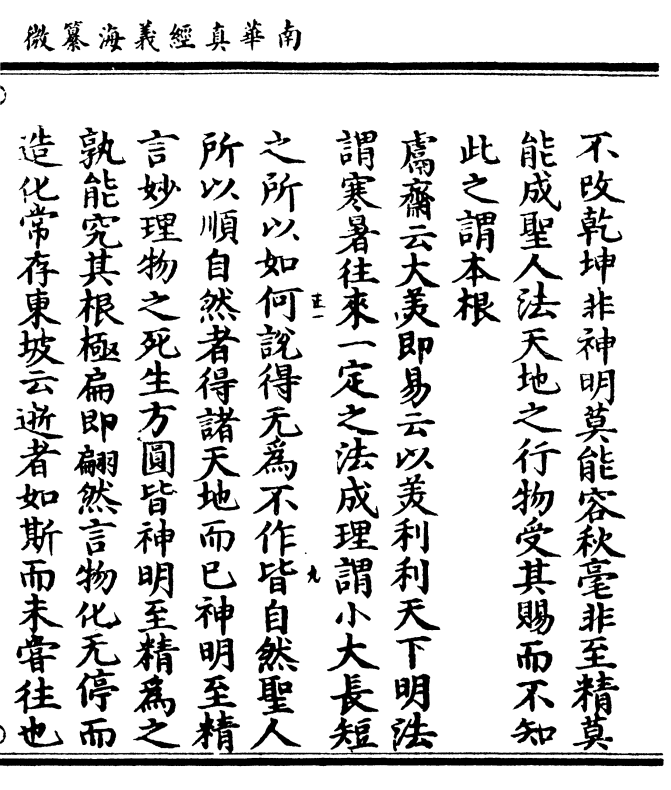 南華真經義海纂微
不改乾坤非神明莫能容秋毫非至精莫
能成聖人法天地之行物受其賜而不知
此之謂本根
鬳齋云大美即易云以美利利天下明法
謂寒暑往來一定之法成理謂小大長短
之所以如何說得无為不作皆自然聖人
所以順自然者得諸天地而已神明至精
言妙理物之死生方圓皆神明至精為之
孰能究其根極扁即翩然言物化无停而
造化常存東坡云逝者如斯而未嘗往也